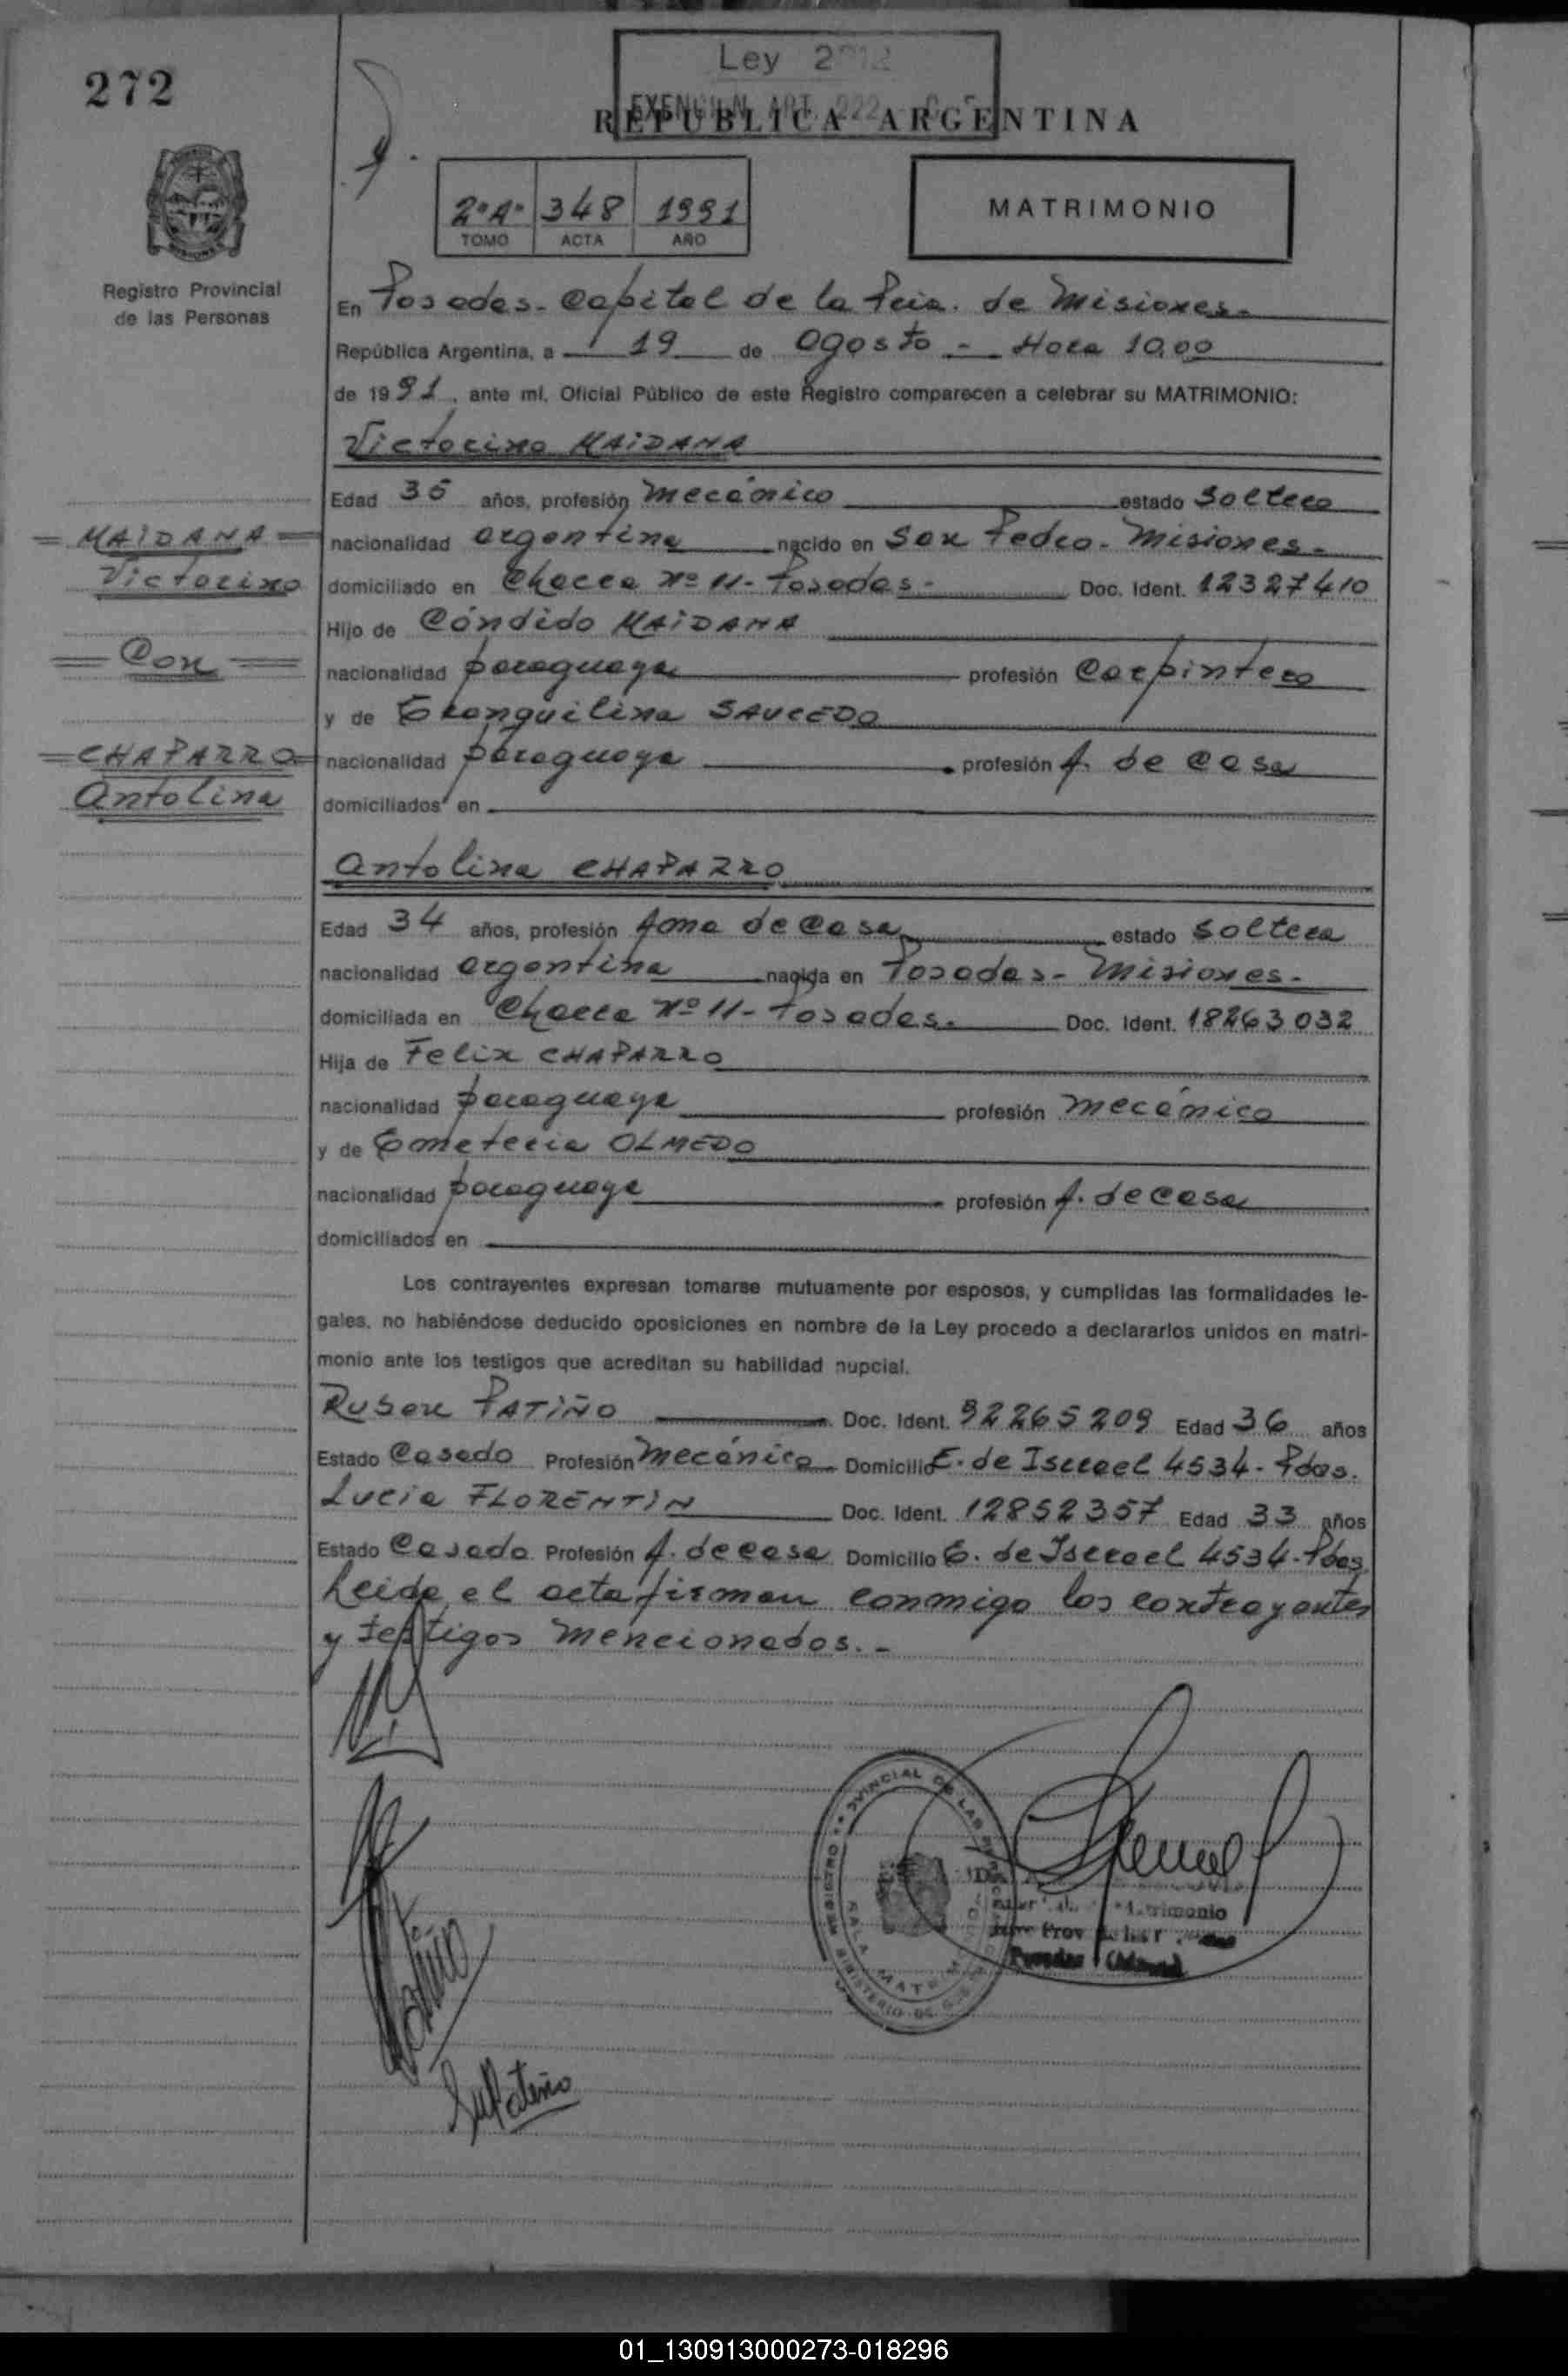 272
Ley 2
EXENCION ART. 222
REPUBLICA ARGENTINA
2º A° 348 1991
TOMO ACTA AÑO
MATRIMONIO
Registro Provincial
de las Personas
En Posadas - Capital de la Pcia. de Misiones.-
República Argentina, a 19 de Agosto - Hora 10,00
de 1991, ante mí, Oficial Público de este Registro comparecen a celebrar su MATRIMONIO:
Victorino MAIDANA
Edad 35 años, profesión Mecánico estado Soltero
nacionalidad argentina nacido en San Pedro - Misiones.-
domiciliado en Chacra Nº 11 - Posadas.- Doc. Ident. 12327410
Hijo de Cándido MAIDANA
nacionalidad paraguaya profesión Carpintero
y de Tranquilina SAUCEDO
nacionalidad paraguaya profesión A. de Casa
domiciliados en
= MAIDANA =
Victorino
= Con =
= CHAPARRO =
Antolina
Antolina CHAPARRO
Edad 34 años, profesión Ama de Casa estado Soltera
nacionalidad argentina nacida en Posadas - Misiones.-
domiciliada en Chacra Nº 11 - Posadas.- Doc. Ident. 18263032
Hija de Felix CHAPARRO
nacionalidad paraguaya profesión Mecánico
y de Emeteria OLMEDO
nacionalidad paraguaya profesión A. de Casa
domiciliados en
Los contrayentes expresan tomarse mutuamente por esposos, y cumplidas las formalidades le-
gales, no habiéndose deducido oposiciones en nombre de la Ley procedo a declararlos unidos en matri-
monio ante los testigos que acreditan su habilidad nupcial.
Ruben PATIÑO Doc. Ident. 92265209 Edad 36 años
Estado Casado Profesión Mecánico Domicilio E. de Israel 4534 - Pdas.
Lucia FLORENTIN Doc. Ident. 12852357 Edad 33 años
Estado Casada Profesión A. de casa Domicilio E. de Israel 4534 - Pdas
Leida el acta firman conmigo los contrayentes
y testigos mencionados.-
Patiño
MATRIMONIO
01_130913000273-018296